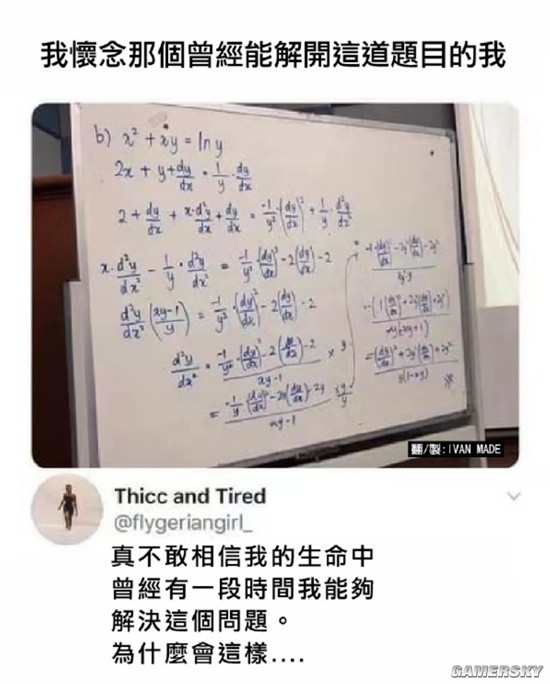 我懷念那個曾經能解開這道題目的我
b) x² + xy = ln y
2x + y + dy/dx = 1/y · dy/dx
2 + dy/dx + x·d²y/dx² + dy/dx = -1/y² · (dy/dx)² + 1/y · d²y/dx²
x · d²y/dx² - 1/y · d²y/dx² = -1/y² · (dy/dx)² - 2(dy/dx) - 2
d²y/dx² (xy-1/y) = -1/y² · (dy/dx)² - 2(dy/dx) - 2
翻/製:IVAN MADE
Thicc and Tired
@flygeriangirl_
真不敢相信我的生命中
曾經有一段時間我能夠
解決這個問題。
為什麼會這樣....
GAMERSKY